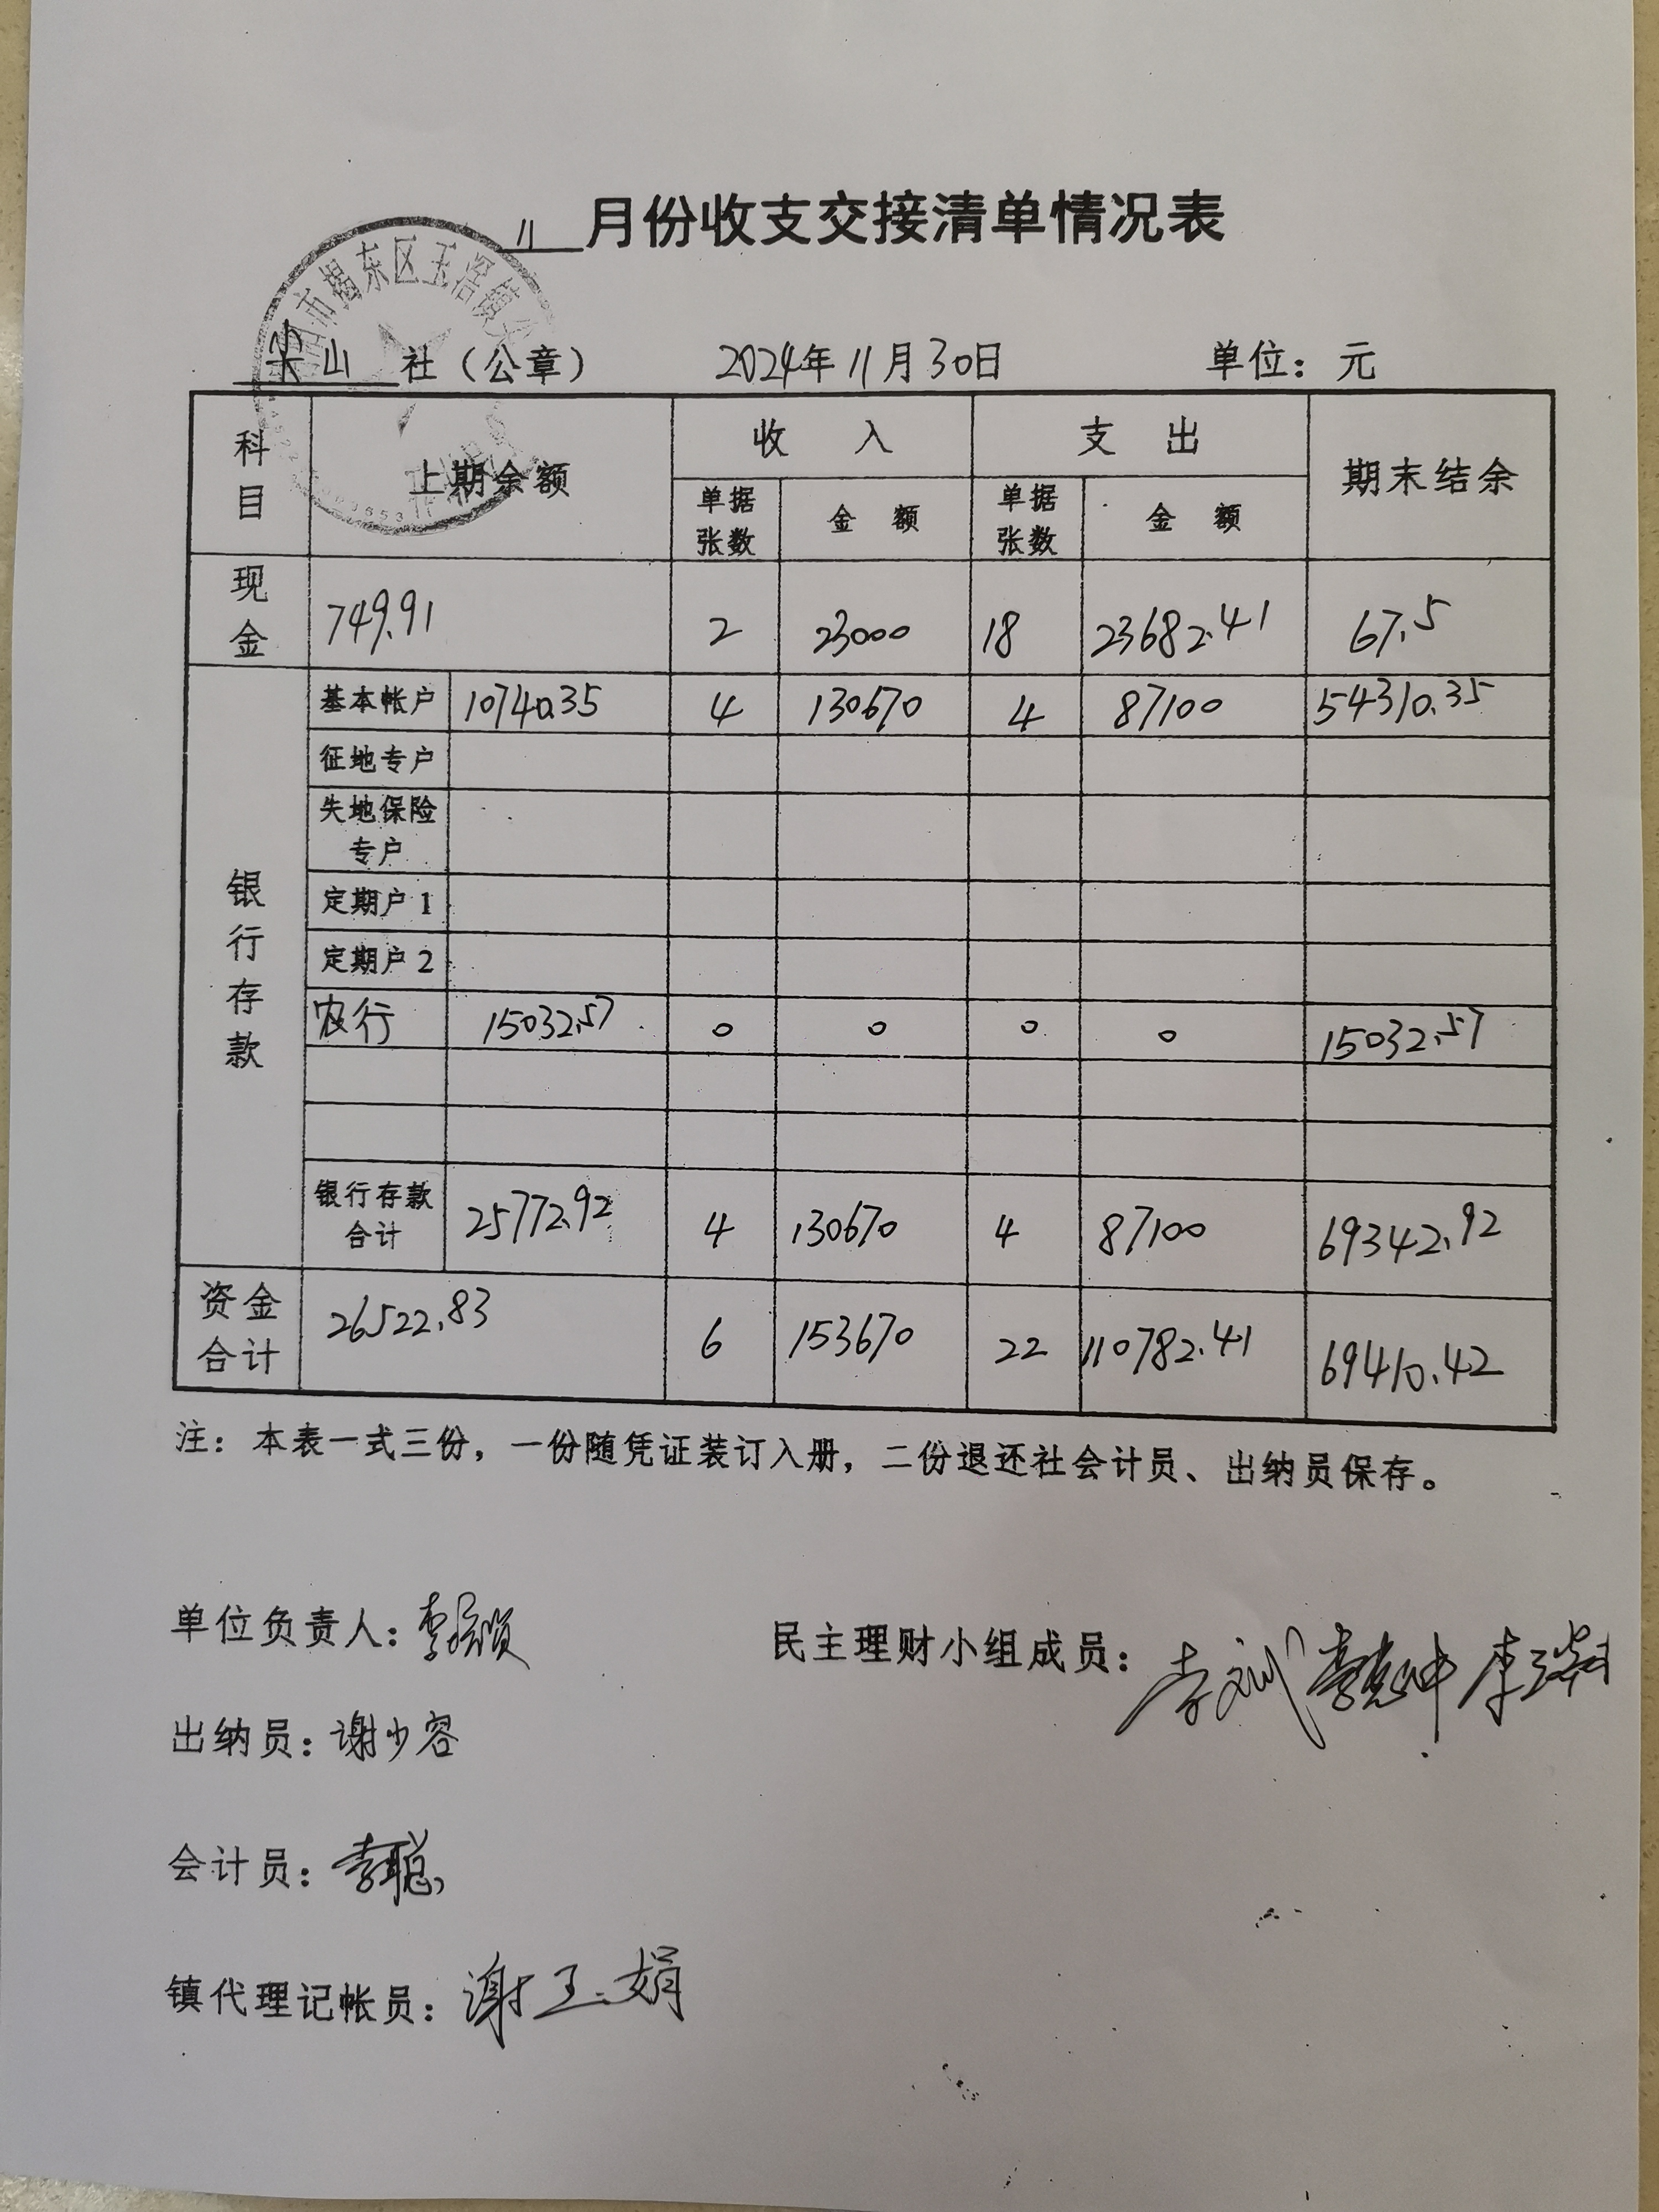 11 月份收支交接清单情况表
市揭东区玉滘镇尖
尖山 社（公章） 2024年11月30日 单位：元
科目 上期余额 收入 支出 期末结余
单据张数 金额 单据张数 金额
现金 749.91 2 23000 18 23682.41 67.5
银行存款
基本帐户 10740.35 4 130670 4 87100 54310.35
征地专户
失地保险专户
定期户1
定期户2
农行 15032.57 0 0 0 0 15032.57
银行存款合计 25772.92 4 130670 4 87100 69342.92
资金合计 26522.83 6 153670 22 110782.41 69410.42
注：本表一式三份，一份随凭证装订入册，二份退还社会计员、出纳员保存。
单位负责人：李 民主理财小组成员：李 李 李
出纳员：谢少容
会计员：李聪
镇代理记帐员：谢玉娟